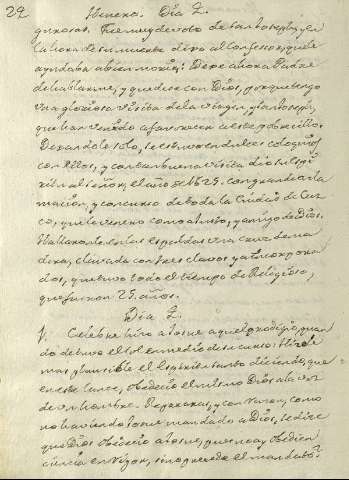 22 Henero. Dia 2.
Fue muy devoto de San Joseph, y en
la hora de su muerte dixo al Confessor, que le
ayudaba a bien morir: Dexe ahora Padre
de hablarme, y quedese con Dios, porque tengo
una gloriosa visita de la Virgen, y San Joseph,
que han venido a favorecer a este pobrecillo.
Dexandole solo, se estuvo en dulces coloquios
con ellos, y con tan buena visita dio su espi
ritu al Señor, el año de 1625. con grande acla
macion, y concurso de toda la Ciudad de Cuz
co, que le venero como a Santo, y amigo de Dios.
Hallaronle en las espaldas una cruz de ma
dera, clavada con tres clavos
dos, que tuvo todo el tiempo de Religioso,
que fueron 25. años.
Dia 2.
Celebre hizo a Josue aquel prodigio, quan
do detuvo el Sol en medio de su curso: Hizole
mas plausible el Espiritu Santo diciendo, que
en este lance, obedecio el mismo Dios a la voz
de un hombre. Reparase, y con razon, como
no haviendo Josue mandado a Dios, se dice
que Dios obedecio a Josue, que no ay obedien
cia en rigor, sino precede el mandato?